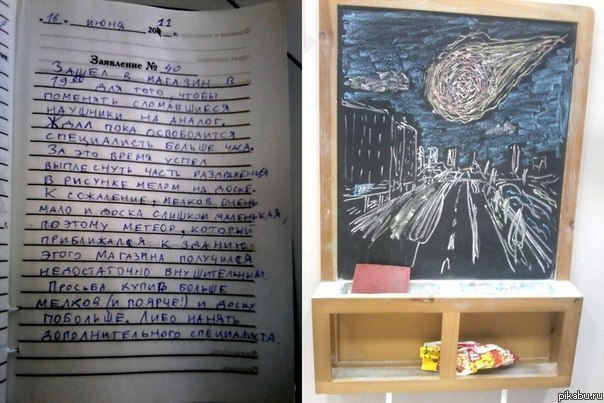 16 июня 2011 г.
Заявление № 40
Зашел в магазин в
19⁰⁰ для того чтобы
поменять сломавшиеся
наушники на аналог.
Ждал пока освободится
специалисть больше часа.
За это время успел
выплеснуть часть раздражения
в рисунке мелом на доске.
К сожалению, мелков очень
мало и доска слишком маленькая,
поэтому метеор, который
приближался к зданию
этого магазина получился
недостаточно внушительным.
Просьба купить больше
мелков (и поярче!) и доску
побольше. Либо нанять
дополнительного специалиста.
pikabu.ru